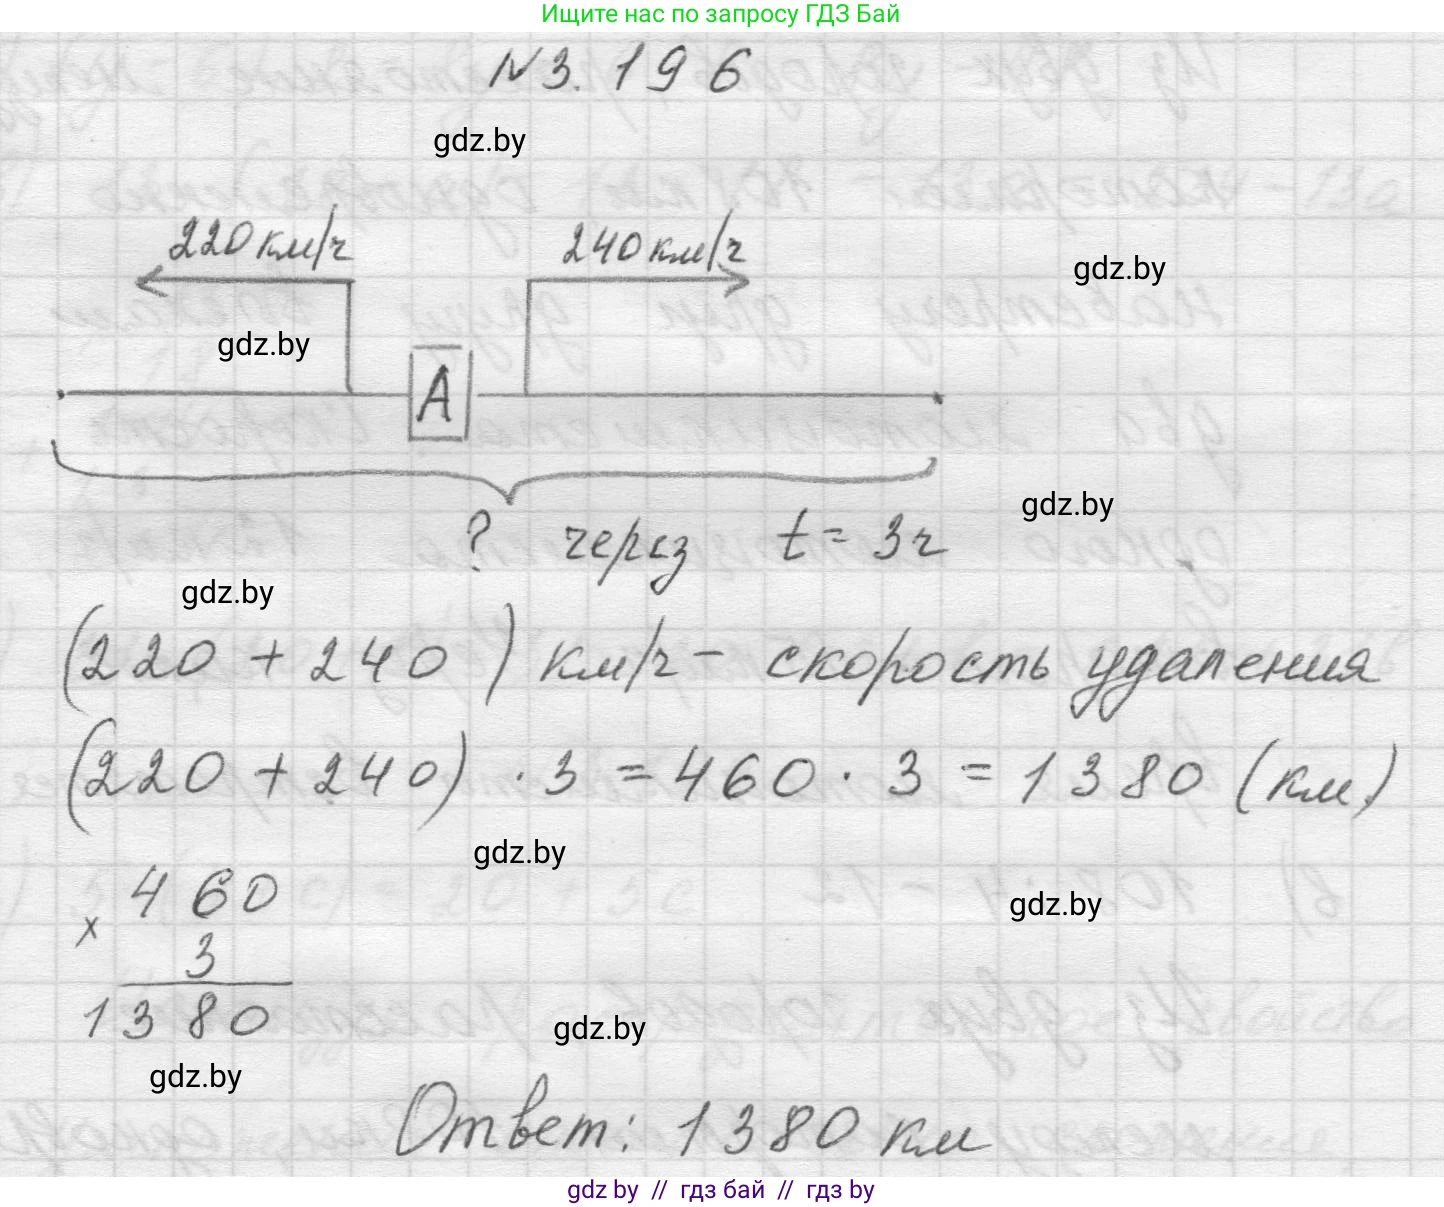 Ищите нас по запросу ГДЗ Бай
№3.196
gdz.by
220 км/ч 240 км/ч
gdz.by
gdz.by
А
? через t = 3ч
gdz.by
gdz.by
(220 + 240) км/ч – скорость удаления
(220 + 240) · 3 = 460 · 3 = 1380 (км)
gdz.by
460
gdz.by
×
3
1380
gdz.by
gdz.by
Ответ: 1380 км
gdz by // гдз бай // гдз by